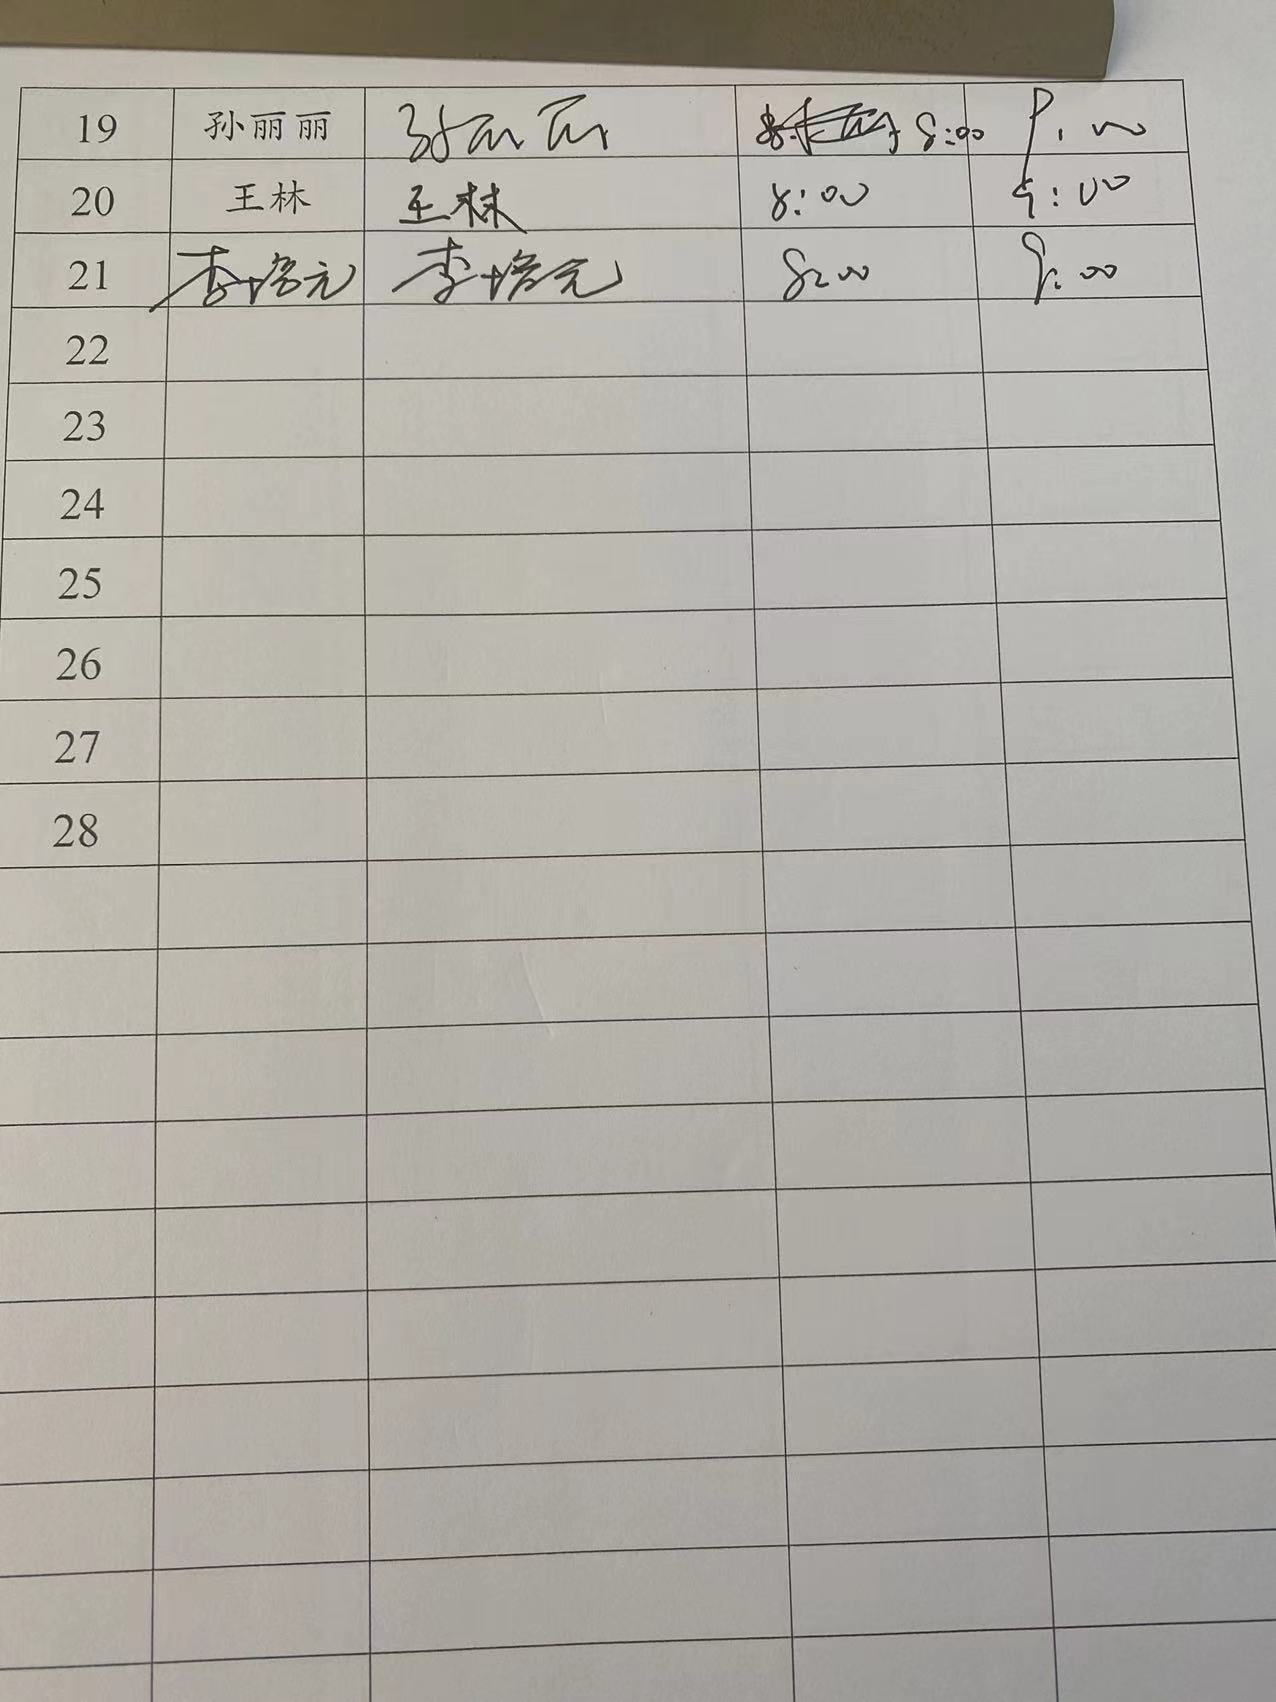 19 孙丽丽 孙丽丽 8:00 9:00
20 王林 王林 8:00 9:00
21 李培元 李培元 8:00 9:00
22
23
24
25
26
27
28